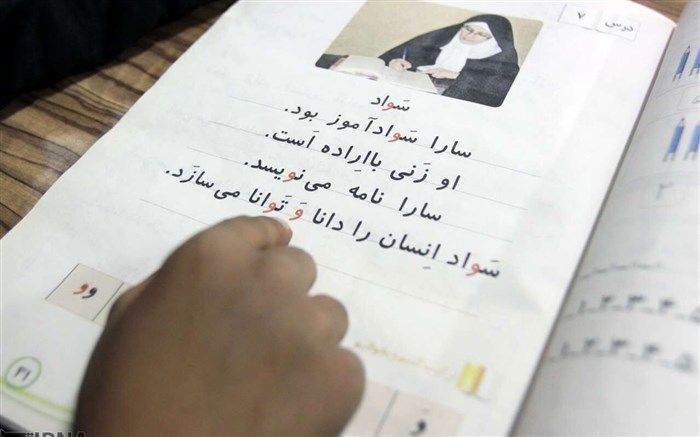 درس ۷
سَواد
سارا سَوادآموز بود.
او زَنی بااِراده اَست.
سارا نامه می‌نویسد.
سَواد اِنسان را دانا وَ تَوانا می‌سازَد.
و و
وَ
۳۱
IRNA